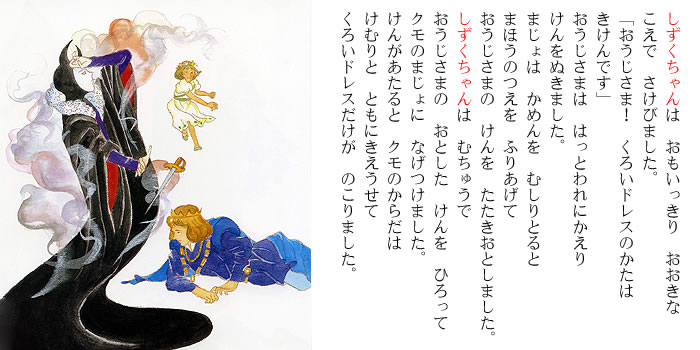 しずくちゃんは　おもいっきり　おおきな
こえで　さけびました。
「おうじさま！　くろいドレスのかたは
きけんです」
おうじさまは　はっとわれにかえり
けんをぬきました。
まじょは　かめんを　むしりとると
まほうのつえを　ふりあげて
おうじさまの　けんを　たたきおとしました。
しずくちゃんは　むちゅうで
おうじさまの　おとした　けんを　ひろって
クモのまじょに　なげつけました。
けんがあたると　クモのからだは
けむりと　ともにきえうせて
くろいドレスだけが　のこりました。